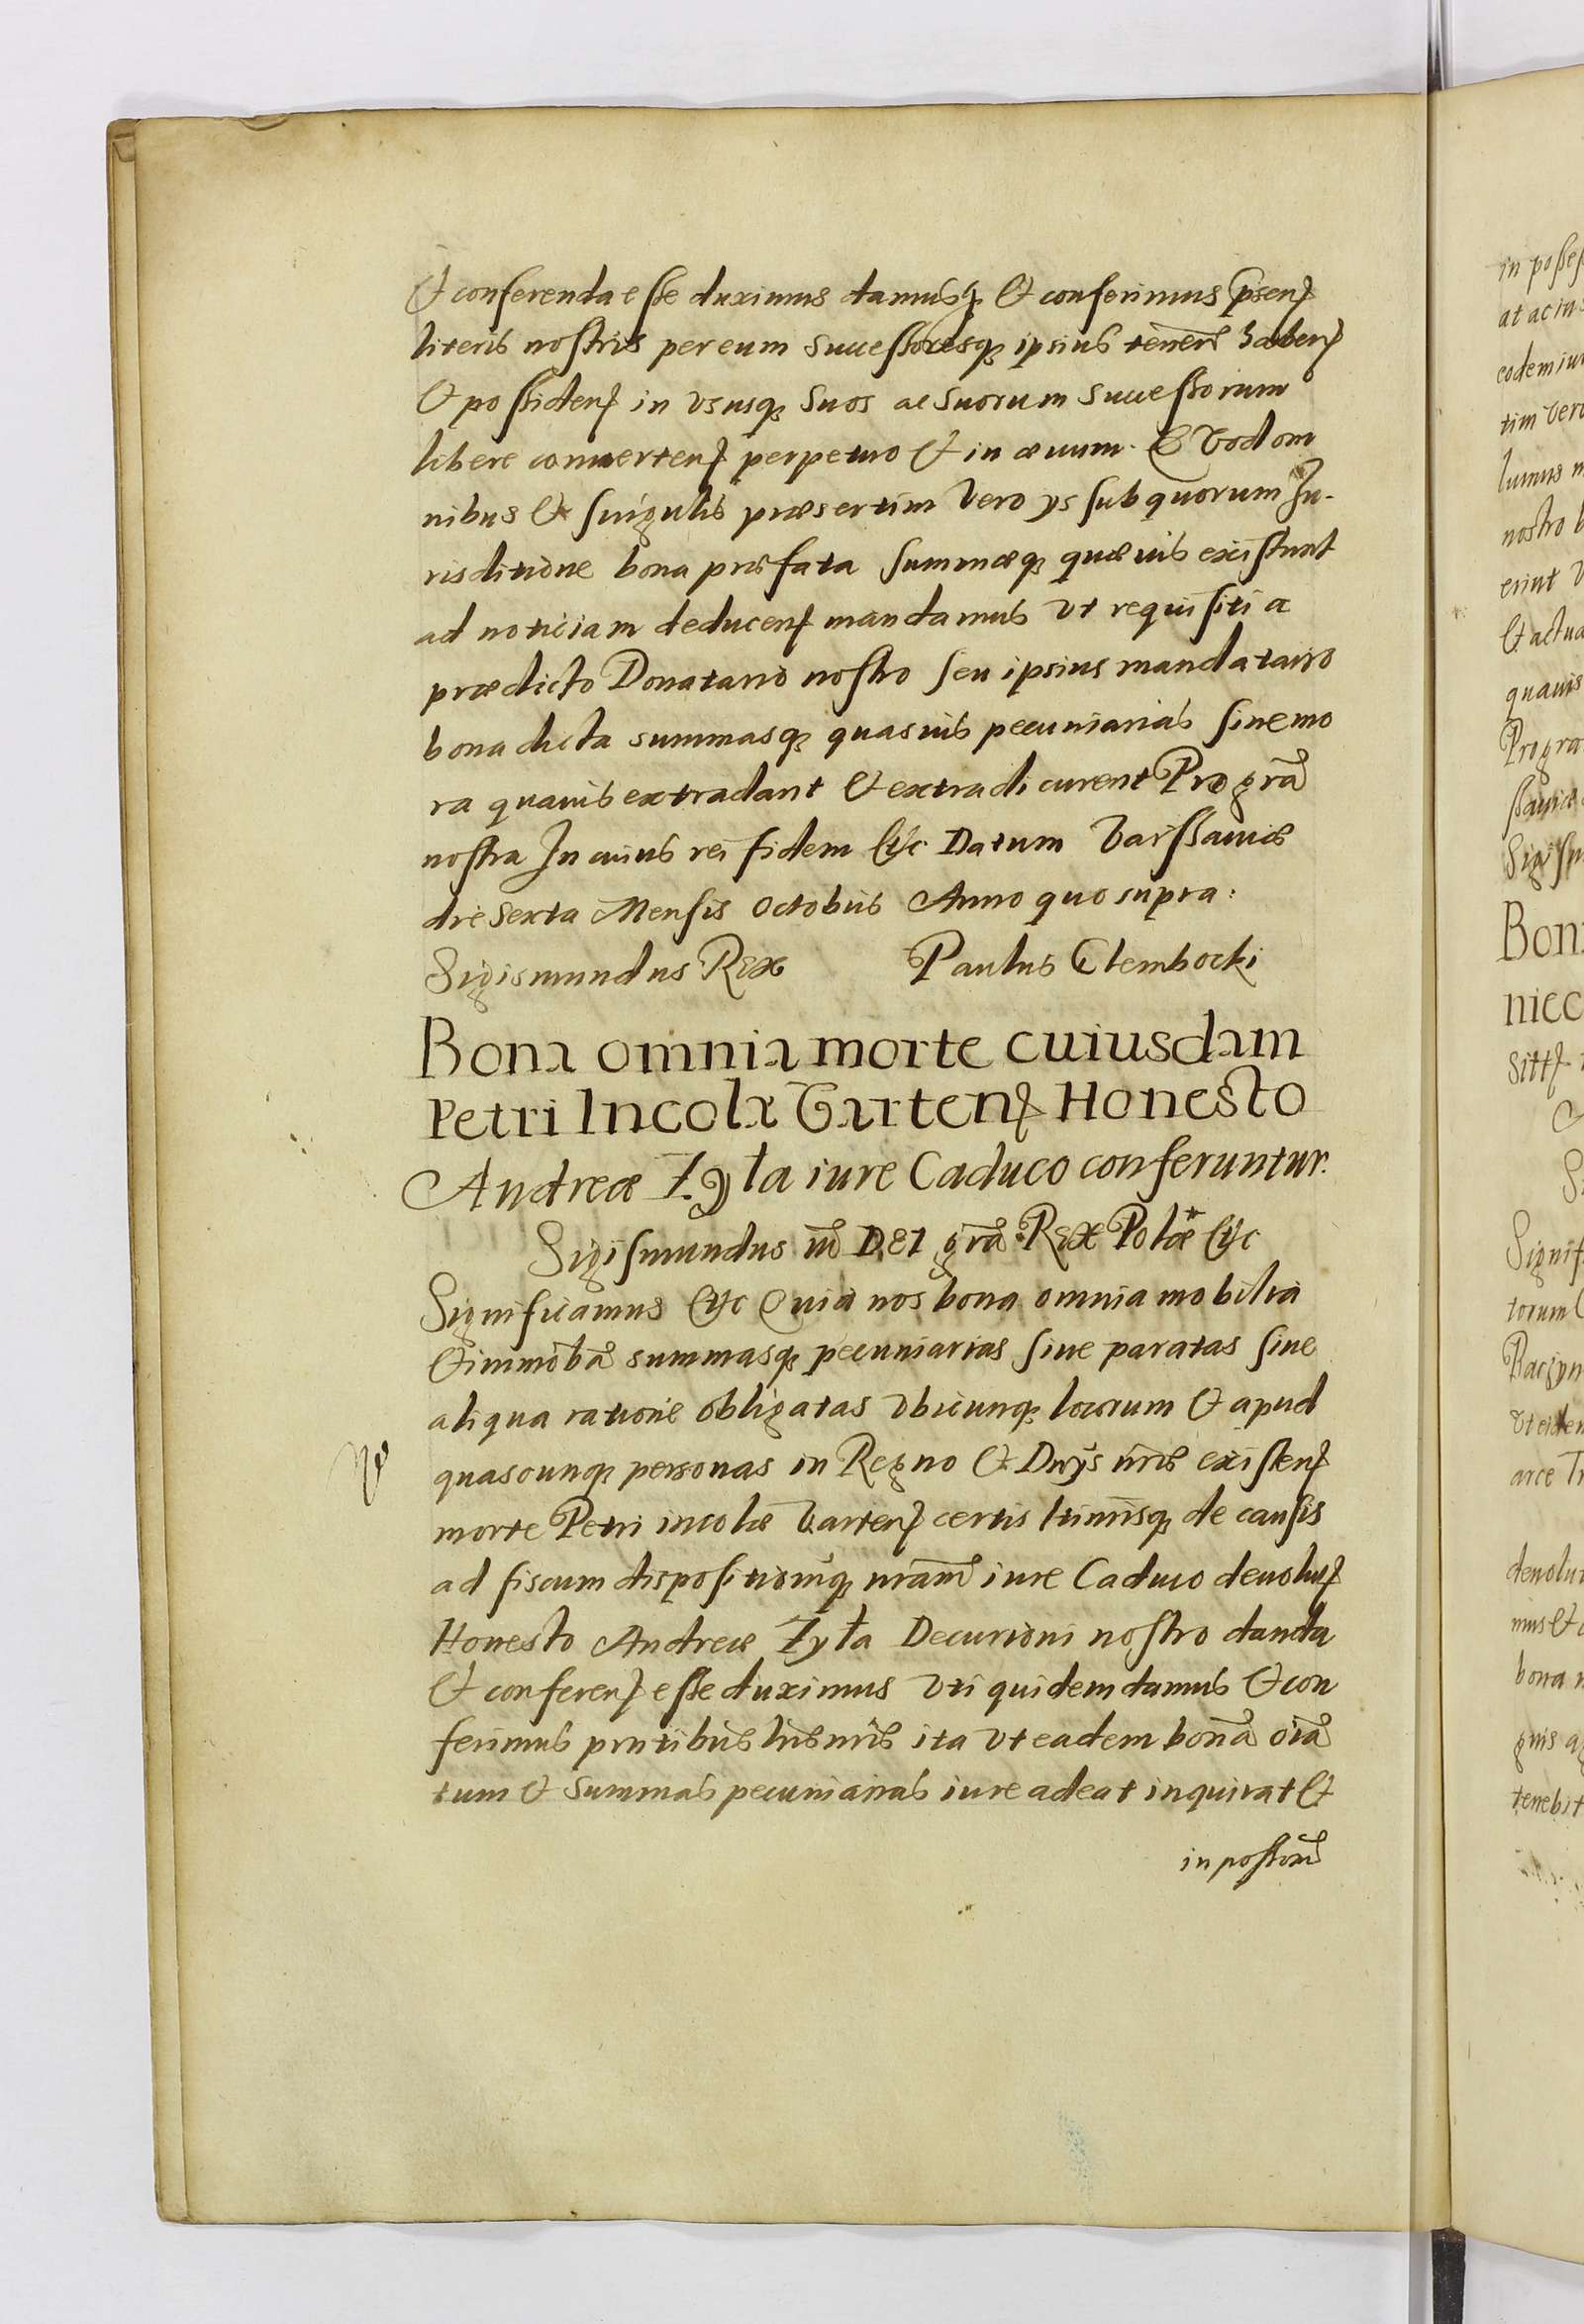 Et conferenda esse duximus damusq; Et conferimus psen
literis nostris per eum Successoresq; ipsius tenen haben
Et possiden in Vsusq; Suos ac Suorum Successorum
libere conuerten perpetuo Et in æuum. Quod om
nibus Et singulis præsertim Vero ys sub quorum Ju-
risditione bona præfata summæq; quæuis existunt
ad noticiam deducen mandamus Vt requisiti a
prædicto Donatario nostro seu ipsius mandatario
bona dicta summasq; quasuis pecuniarias sine mo
ra quauis extradant Et extradi curent Pro grã
nostra In cuius rei fidem Etc Datum Varssauiæ
die Sexta Mensis Octobris Anno quo supra:
Sigismundus Rex Paulus Clembocki
Bona omnia morte cuiusdam
Petri Incolæ Varten Honesto
Andreæ Zyła iure Caduco conferuntur.
Sigismundus iii DEI grã REX Polæ Etc
Significamus Etc Quia nos bona omnia mobilia
Et immobã summasq; pecuniarias siue paratas siue
aliqua ratione obligatas Vbicunq; locorum Et apud
quascunq; personas in Regno Et Dnys nris existen
morte Petri incolæ Varten certis ltimisq; de causis
ad fiscum dispositionq; nram iure Caduco deuolut
Honesto Andreæ Zyła Decurioni nostro danda
Et conferen esse duximus Vti quidem damus Et con
ferimus pntibus lris nris ita Vt eadem bona oia
tum Et Summas pecuniarias iure adeat inquirat Et
in possom
in posse
at ac in
eodem iu
tim Vero
lumus
nostro
erint
Et actua
quauis
Pro gra
ssauiæ
Sigis
Bon
niec
Signif
torum
Vt eide
arce
deuolu
mus Et
bona
tenebit